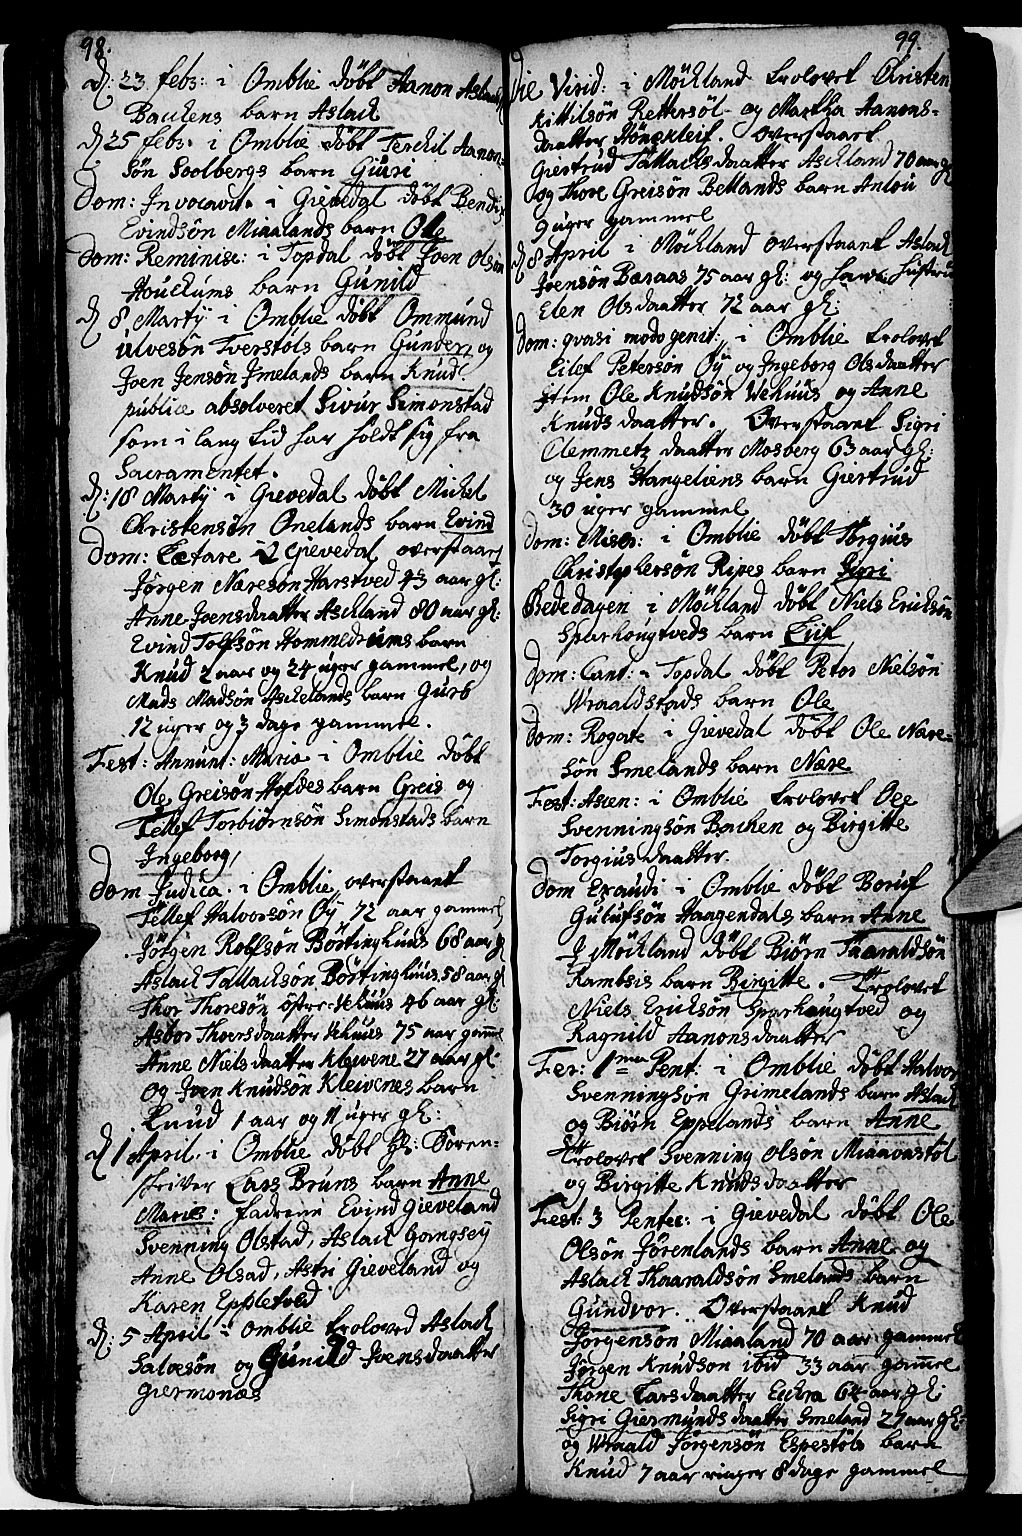 98.
d. 23 febr: i Omblie döbt Aanon Aslach
Bachens barn Aslach
d. 25 febr. i Omblie döbt Terchil Aanon-
sön Soolbergs barn Guri
Dom: Invocavit. i Gievedal döbt Bendix
Evindsön Miaalands barn Ole
Dom: Reminisc: i Topdal döbt Joen Olsön
Houchums barn Gunild
d. 8 Martij i Omblie döbt Ommund
Ulvesön Tverstöls barn Gunder, og
Joen Jensön Jmelands barn Knud.
publice absolveret Sivur Simonstad
som i lang tid har holdt sig fra
Sacramentet.
d: 18 Martij i Gievedal döbt Michel
Christensön Onelands barn Evind
Dom: Lætare i Gievedal overstaaet
Jörgen Naresön Harstved 43 aar gl:
Anne Joensdaatter Aschland 80 aar gl:
Evind Tolfsön Hommedrums barn
Knud 2 aar og 24 uger gammel, og
Mads Madsön Aschelands barn Guro
12 uger og 3 dage gammel.
Fest: Annunt: Mariæ i Omblie döbt
Ole Greisön Hofdes barn Greis og
Tellef Torbiörnsön Simonstads barn
Ingeborg,
Dom Judica. i Omblie overstaaet
Tellef Halvorsön Öy 72 aar gammel
Jörgen Rolfsön Börtinghuus 68 aar gl
Aslach Tallachsön Börtinghuus 58 aar gl
Thor Thoresön öfre-Vehuus 46 aar gl:
Asbor Thorsdaatter Vehuus 75 aar gamel
Anne Nielsdaatter Klewene 27 aar gl:
og Joen Knudsön Klewenes barn
Knud 1 aar og 11 uger gl:
d. 1 April. i Omblie döbt Hr: Soren-
skriver Lars Bruns barn Anne
Marie: fadrene Evind Gieveland
Svenning Olstad, Aslach Gangsey
Anne Olsad, Astri Gieveland og
Karen Eppletvold
d. 5 April i Omblie troloved Aslach
Salvesön og Gunild Joensdaatter
Giermonæs
99.
die Virid: i Möckland trolovet Christen
Kittilsön Rettersöl og Martha Aanons-
daatter Hönekleif. Overstaaet
Giertrud Tallachsdaatter Aschland 70 aar gl
og Thore Greisön Betlands barn Anlou
9 uger gammel
d. 8 April i Möckland overstaaet Aslach
Joensön Baraas 75 aar gl: og hans hustru
Elen Olsdaatter 72 aar gl:
Dom: qvasi modo genit: i Omblie trolovet
Eilef Petersön Öy og Ingeborg Olsdaatter
item Ole Knudsön Wehuus og Anne
Knudsdaatter. Overstaaet Sigri
Clemmetz daatter Mosberg 63 aar gl:
og Jens Stangeliens barn Giertrud
30 uger gammel
Dom: Miser: i Omblie döbt Torgius
Christophersön Ripes barn Sigri
Bededagen i Möckland döbt Niels Ericksön
Sparhougtveds barn Leif
Dom: Cant: i Topdal döbt Peter Nielsön
Wraaldstads barn Ole
Dom: Rogate i Gievedal döbt Ole Nare-
sön Smelands barn Nare
Fest: Ascen: i Omblie trolovet Ole
Svenningsön Bachen og Birgitte
Torgiusdaatter.
Dom Exaudi i Omblie döbt Boruf
Gulufsön Haagendals barn Anne
I Möckland döbt Biørn Tharaldsön
Kambsis barn Birgitte. Trolovet
Niels Ericksön Sparhougtved og
Ragnild Aanonsdaatter
Fer: 1ma Pent: i Omblie döbt Halvor
Svenningsön Grimelands barn Aslach
og Biörn Eppelands barn Anne
Trolovet Svenning Olsön Miaavastöl
og Birgitte Knudsdaatter
Fest: 3 Pentec: i Gievedal döbt Ole
Olsön Jörenlands barn Anne og
Aslach Thaaraldsön Smelands barn
Gundvor. Overstaaet Knud
Jörgensön Miaaland 70 aar gammel
Jörgen Knudson ibid 33 aar gamel
Thone Larsdaatter Eichra 64 aar gl:
Sigri Giermundsdaatter Smeland 27 aar gl:
og Wraald Jörgensön Espestöls barn
Knud 7 aar ringer 8 dage gammel